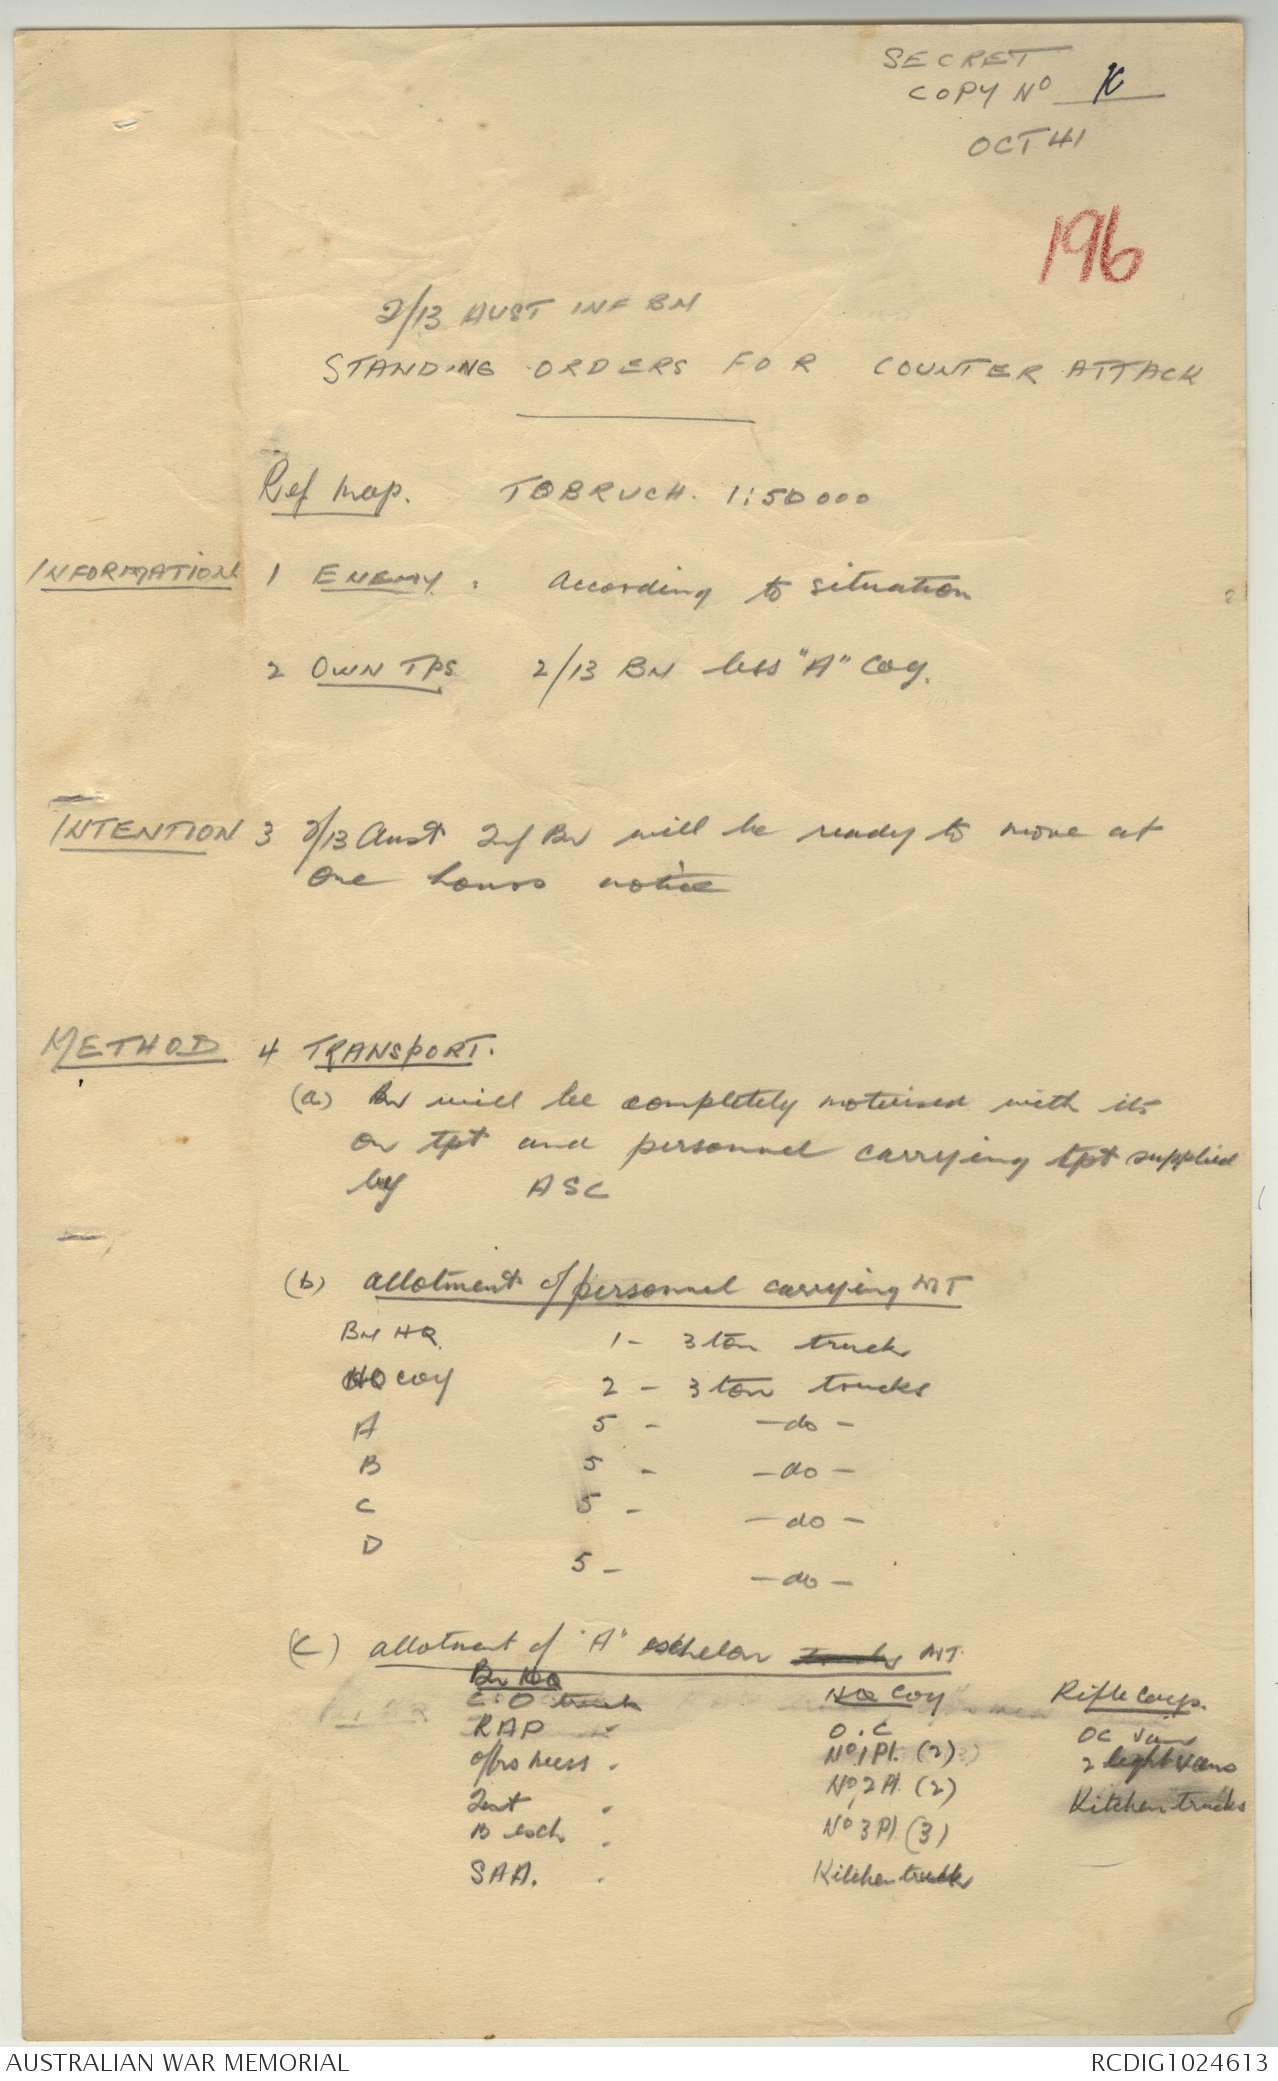 SECRET
COPY No K
OCT 41
196
2/13 AUST INF BN
STANDING ORDERS FOR COUNTER ATTACK
Ref Map. TOBRUCH. 1:50000
INFORMATION 1 ENEMY. According to situation
2 OWN TPS 2/13 BN less "A" Coy.
INTENTION 3 2/13 Aust Inf Bn will be ready to move at
one hours notice
METHOD 4 TRANSPORT.
(a) Bn will be completely motorised with its
on tpt and personnel carrying tpt supplied
by ASC
(b) Allotment of personnel carrying MT
BN HQ 1 - 3 ton truck
HQ COY 2 - 3 ton trucks
A 5 - - do -
B 5 - - do -
C 5 - - do -
D 5 - - do -
(c) Allotment of "A" eschelon MT.
Bn HQ HQ COY Rifle Coys.
C.O truck O.C OC Van
RAP " No 1 Pl. (2) 2 light vans
Offrs mess " No 2 Pl. (2) Kitchen trucks
Int "
B esch " No 3 Pl (3)
SAA. " Kitchen truck
AUSTRALIAN WAR MEMORIAL RCDIG1024613